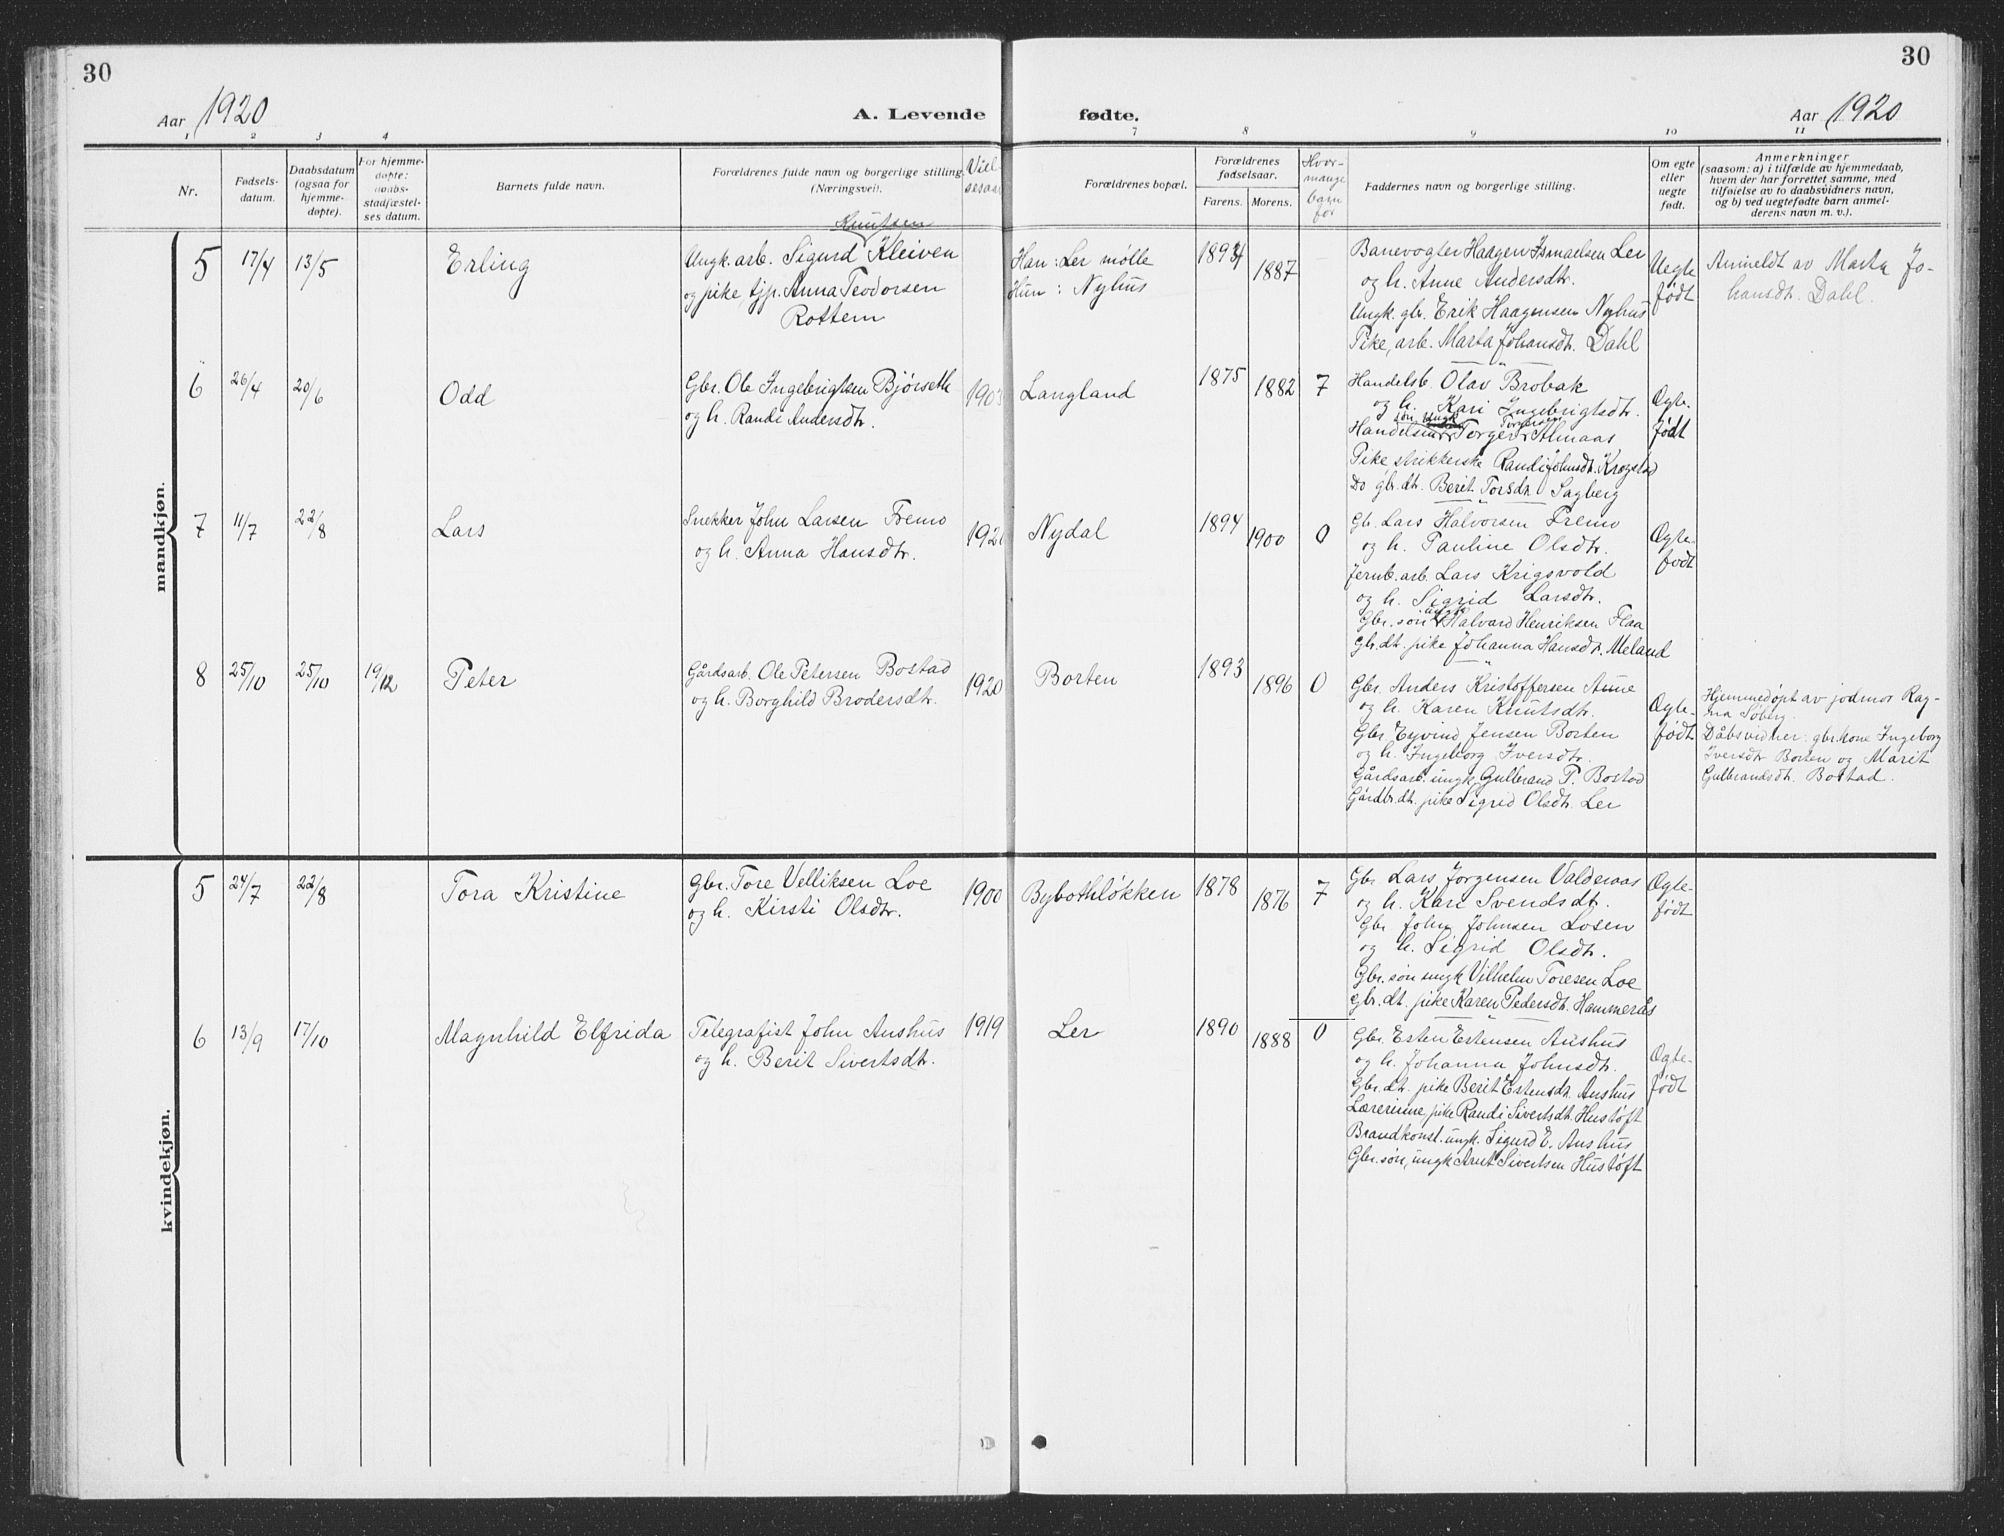 30
30
Aar 1920
A. Levende fødte.
Aar 1920
1 2 3 4 7 8 9 10 11
Nr.
Fødsels-
datum.
Daabsdatum
(ogsaa for
hjemme-
døpte).
For hjemme-
døpte:
daabs-
stadfæstel-
ses datum.
Barnets fulde navn.
Forældrenes fulde navn og borgerlige stilling
(Næringsvei).
Viel-
sesaar
Forældrenes bopæl.
Forældrenes
fødselsaar.
Farens. Morens.
Hvor-
mange
barn
før
Faddernes navn og borgerlige stilling.
Om egte
eller
uegte
født.
Anmerkninger
(saasom: a) i tilfælde av hjemmedaab,
hvem der har forrettet samme, med
tilføielse av to daabsvidners navn,
og b) ved uegtefødte barn anmel-
derens navn m. v.).
mandkjøn.
5 17/4 13/5 Erling
Knutsen
Ungk. arb. Sigurd Kleiven
og pike tjp. Anna Teodorsen
Rottem
Han: Ler mølle
Hun: Nyhus
1894 1887
Banevogter Haagen Ismaelsen Ler
og h. Anne Andersdtr.
Ungk. gbr. Erik Haagensen Nyhus
Pike, arb. Marta Johansdtr. Dahl
Uegte
født
Anmeldt av Marta Jo-
hansdtr. Dahl.
6 26/4 20/6 Odd
Gbr. Ole Ingebrigtsen Bjørseth
og h. Randi Andersdtr.
1903
Langland
1875 1882 7
Handelsb. Olav Brobak
og h. Kari Ingebrigtsdtr.
søn ungk. Torgersen
Torger Almaas
Pike strikkerske Randi Johnsdt. Krogstad
Do gbr. dt. Berit Torsdtr. Sagberg
Ægte-
født
7 11/7 22/8 Lars
Snekker John Larsen Fremo
og h. Anna Hansdtr.
Nydal
1894 1900 0
Gb. Lars Halvorsen Fremo
og h. Pauline Olsdtr.
Jernb. arb. Lars Krigsvold
og h. Sigrid Larsdtr.
ungk.
Gbr. søn Halvard Henriksen Flaa
Gbr. dt. pike Johanna Hansdt. Meland
Ægte-
født
8 25/10 25/10 19/12 Peter
Gårdsarb. Ole Petersen Bostad
og h. Borghild Brodersdtr.
1920
Borten
1893 1896 0
Gbr. Anders Kristoffersen Aune
og h. Karen Knutsdtr.
Gbr. Eyvind Jensen Borten
og h. Ingeborg Iversdtr.
Gårdsarb. ungk. Gulbrand P. Bostad
Gårdbr. dt. pike Sigrid Olsdt. Ler
Ægte-
født
Hjemmedøpt av jodmor Rag-
na Søberg.
Dåbsvidner: gbr. kone Ingeborg
Iversdtr Borten og Marit
Gulbrandsdt. Bostad.
kvindekjøn.
5 24/7 22/8 Tora Kristine
Gbr. Tore Velliksen Loe
og h. Kirsti Olsdtr.
1900
Bybothløkken
1878 1876 7
Gbr Lars Jørgensen Valderaas
og h. Kari Svendsdt.
Gbr John Johnsen Losen
og h. Sigrid Olsdtr.
Gbr. søn ungk Vilhelm Toresen Loe
gbr. dt. pike Karen Pedersdt. Hammerås
Ægte-
født
6 13/9 17/10 Magnhild Elfrida
Telegrafist John Aushus
og h. Berit Sivertsdtr.
1919
Ler
1890 1888 0
Gbr. Esten Estensen Aushus
og h. Johanna Johnsdtr.
Gbr. dt. pike Berit Estensdtr. Aushus
Lærerinne, pike Randi Sivertsdt. Hustøft
Brandkonst. ungk. Sigurd E. Aushus
Gbr. søn, ungk Arnt Sivertsen Hustøft
Ægte-
født